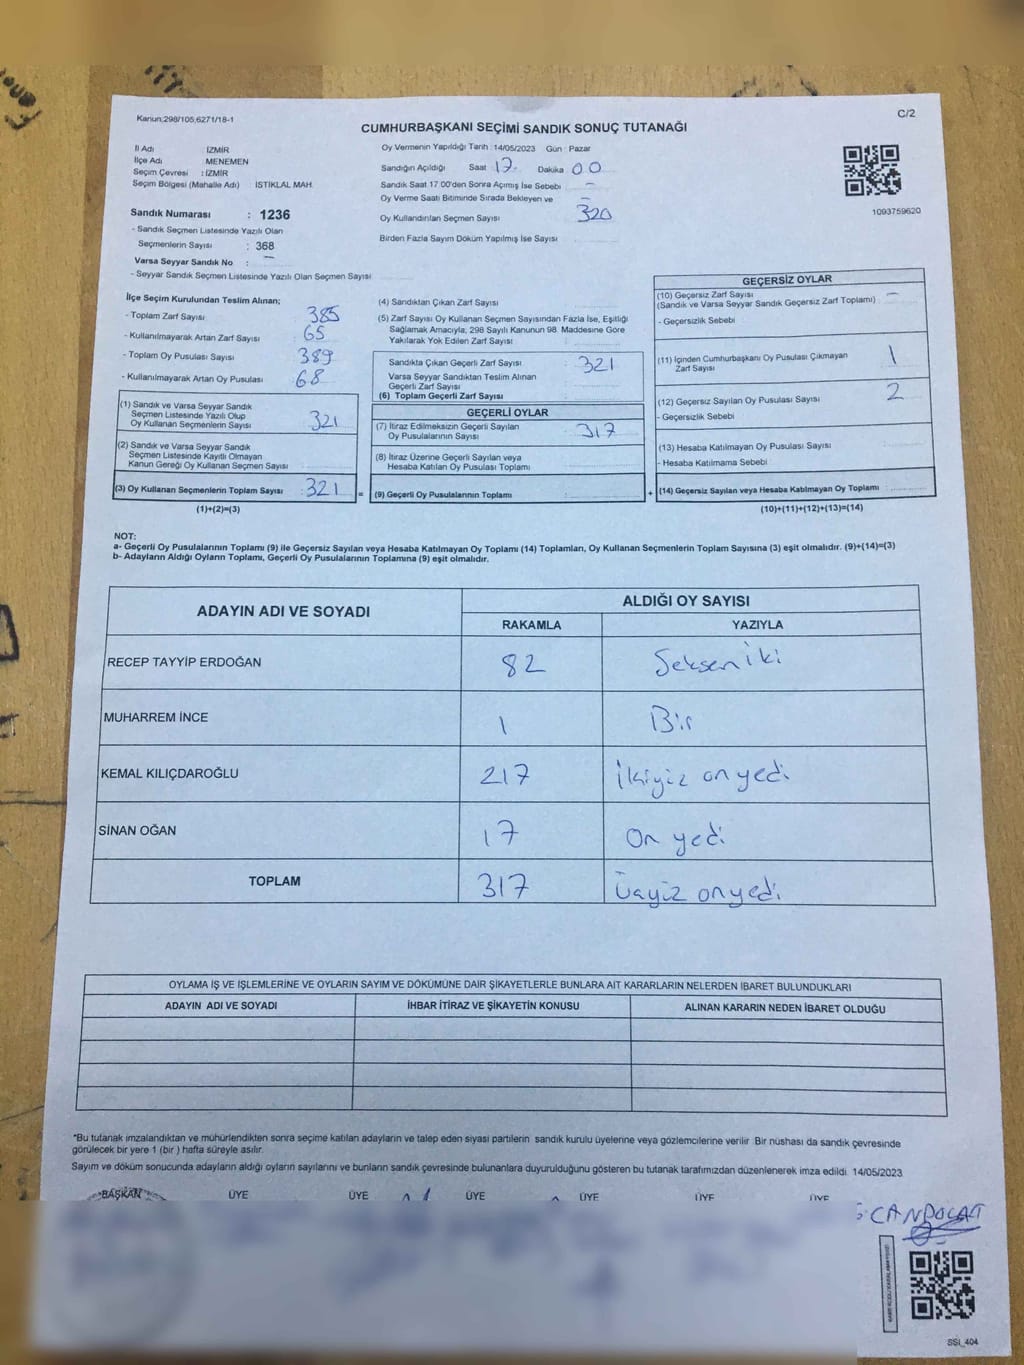 Kanun;298/105,6271/18-1
C/2
CUMHURBAŞKANI SEÇİMİ SANDIK SONUÇ TUTANAĞI
İl Adı : İZMİR
İlçe Adı MENEMEN
Seçim Çevresi : İZMİR
Seçim Bölgesi (Mahalle Adı) İSTİKLAL MAH.
Sandık Numarası : 1236
- Sandık Seçmen Listesinde Yazılı Olan
Seçmenlerin Sayısı : 368
Varsa Seyyar Sandık No : -
- Seyyar Sandık Seçmen Listesinde Yazılı Olan Seçmen Sayısı
Oy Vermenin Yapıldığı Tarih : 14/05/2023 Gün : Pazar
Sandığın Açıldığı Saat 17 Dakika 00
Sandık Saat 17 00'den Sonra Açımış İse Sebebi -
Oy Verme Saati Bitiminde Sırada Bekleyen ve -
Oy Kullandırılan Seçmen Sayısı 320
Birden Fazla Sayım Döküm Yapılmış İse Sayısı
1093759620
İlçe Seçim Kurulundan Teslim Alınan;
- Toplam Zarf Sayısı 385
- Kullanılmayarak Artan Zarf Sayısı 65
- Toplam Oy Pusulası Sayısı 389
- Kullanılmayarak Artan Oy Pusulası 68
(1) Sandık ve Varsa Seyyar Sandık
Seçmen Listesinde Yazılı Olup
Oy Kullanan Seçmenlerin Sayısı 321
(2) Sandık ve Varsa Seyyar Sandık
Seçmen Listesinde Kayıtlı Olmayan
Kanun Gereği Oy Kullanan Seçmen Sayısı
(3) Oy Kullanan Seçmenlerin Toplam Sayısı : 321 =
(1)+(2)=(3)
(4) Sandıktan Çıkan Zarf Sayısı
(5) Zarf Sayısı Oy Kullanan Seçmen Sayısından Fazla İse, Eşitliği
Sağlamak Amacıyla, 298 Sayılı Kanunun 98. Maddesine Göre
Yakılarak Yok Edilen Zarf Sayısı
Sandıkta Çıkan Geçerli Zarf Sayısı : 321
Varsa Seyyar Sandıktan Teslim Alınan
Geçerli Zarf Sayısı
(6) Toplam Geçerli Zarf Sayısı
GEÇERLİ OYLAR
(7) İtiraz Edilmeksizin Geçerli Sayılan
Oy Pusulalarının Sayısı 317
(8) İtiraz Üzerine Geçerli Sayılan veya
Hesaba Katılan Oy Pusulası Toplamı
(9) Geçerli Oy Pusulalarının Toplamı : +
GEÇERSİZ OYLAR
(10) Geçersiz Zarf Sayısı
(Sandık ve Varsa Seyyar Sandık Geçersiz Zarf Toplamı) -
- Geçersizlik Sebebi
(11) İçinden Cumhurbaşkanı Oy Pusulası Çıkmayan
Zarf Sayısı 1
(12) Geçersiz Sayılan Oy Pusulası Sayısı 2
- Geçersizlik Sebebi
(13) Hesaba Katılmayan Oy Pusulası Sayısı
- Hesaba Katılmama Sebebi
(14) Geçersiz Sayılan veya Hesaba Katılmayan Oy Toplamı
(10)+(11)+(12)+(13)=(14)
NOT:
a- Geçerli Oy Pusulalarının Toplamı (9) ile Geçersiz Sayılan veya Hesaba Katılmayan Oy Toplamı (14) Toplamları, Oy Kullanan Seçmenlerin Toplam Sayısına (3) eşit olmalıdır. (9)+(14)=(3)
b- Adayların Aldığı Oyların Toplamı, Geçerli Oy Pusulalarının Toplamına (9) eşit olmalıdır.
ADAYIN ADI VE SOYADI
ALDIĞI OY SAYISI
RAKAMLA YAZIYLA
RECEP TAYYİP ERDOĞAN 82 Seksen iki
MUHARREM İNCE 1 Bir
KEMAL KILIÇDAROĞLU 217 İkiyüz on yedi
SİNAN OĞAN 17 On yedi
TOPLAM 317 Üçyüz on yedi
OYLAMA İŞ VE İŞLEMLERİNE VE OYLARIN SAYIM VE DÖKÜMÜNE DAİR ŞİKAYETLERLE BUNLARA AİT KARARLARIN NELERDEN İBARET BULUNDUKLARI
ADAYIN ADI VE SOYADI İHBAR İTİRAZ VE ŞİKAYETİN KONUSU ALINAN KARARIN NEDEN İBARET OLDUĞU
*Bu tutanak imzalandıktan ve mühürlendikten sonra seçime katılan adayların ve talep eden siyasi partilerin sandık kurulu üyelerine veya gözlemcilerine verilir. Bir nüshası da sandık çevresinde
görülecek bir yere 1 (bir ) hafta süreyle asılır.
Sayım ve döküm sonucunda adayların aldığı oyların sayılarını ve bunların sandık çevresinde bulunanlara duyurulduğunu gösteren bu tutanak tarafımızdan düzenlenerek imza edildi. 14/05/2023
BAŞKAN ÜYE ÜYE ÜYE ÜYE ÜYE ÜYE
CANPOLAT
SSI_404